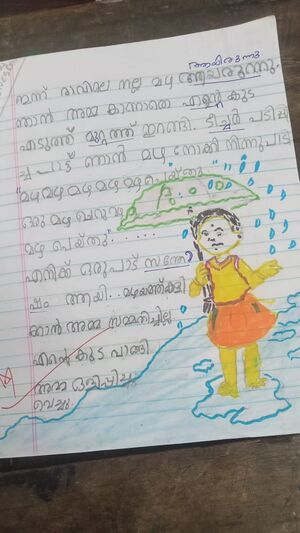 ആയിരുന്നു
ഇന്ന് രാവിലെ നല്ല മഴ ആയരുന്നു.
ഞാൻ അമ്മ കാണാതെ എന്റെ കുട
എടുത്ത് മുറ്റത്ത് ഇറങ്ങി. ടീച്ചർ പഠിപ്പി
ച്ച പാട്ട് ഞാൻ മഴ നോക്കി നിന്നുപാടി
"മഴ മഴ മഴ മഴ മഴ പെയ്തു
ഒരു മഴ ചെറുമഴ
മഴ പെയ്തു".......
എനിക്ക് ഒരുപാട് സന്തോ
ഷം ആയി.. മഴയത്ത് കളി
ക്കാൻ അമ്മ സമ്മതിച്ചില്ല
എന്റെ കുട വാങ്ങി
അമ്മ ഒളിപ്പിച്ചു
വെച്ചു.